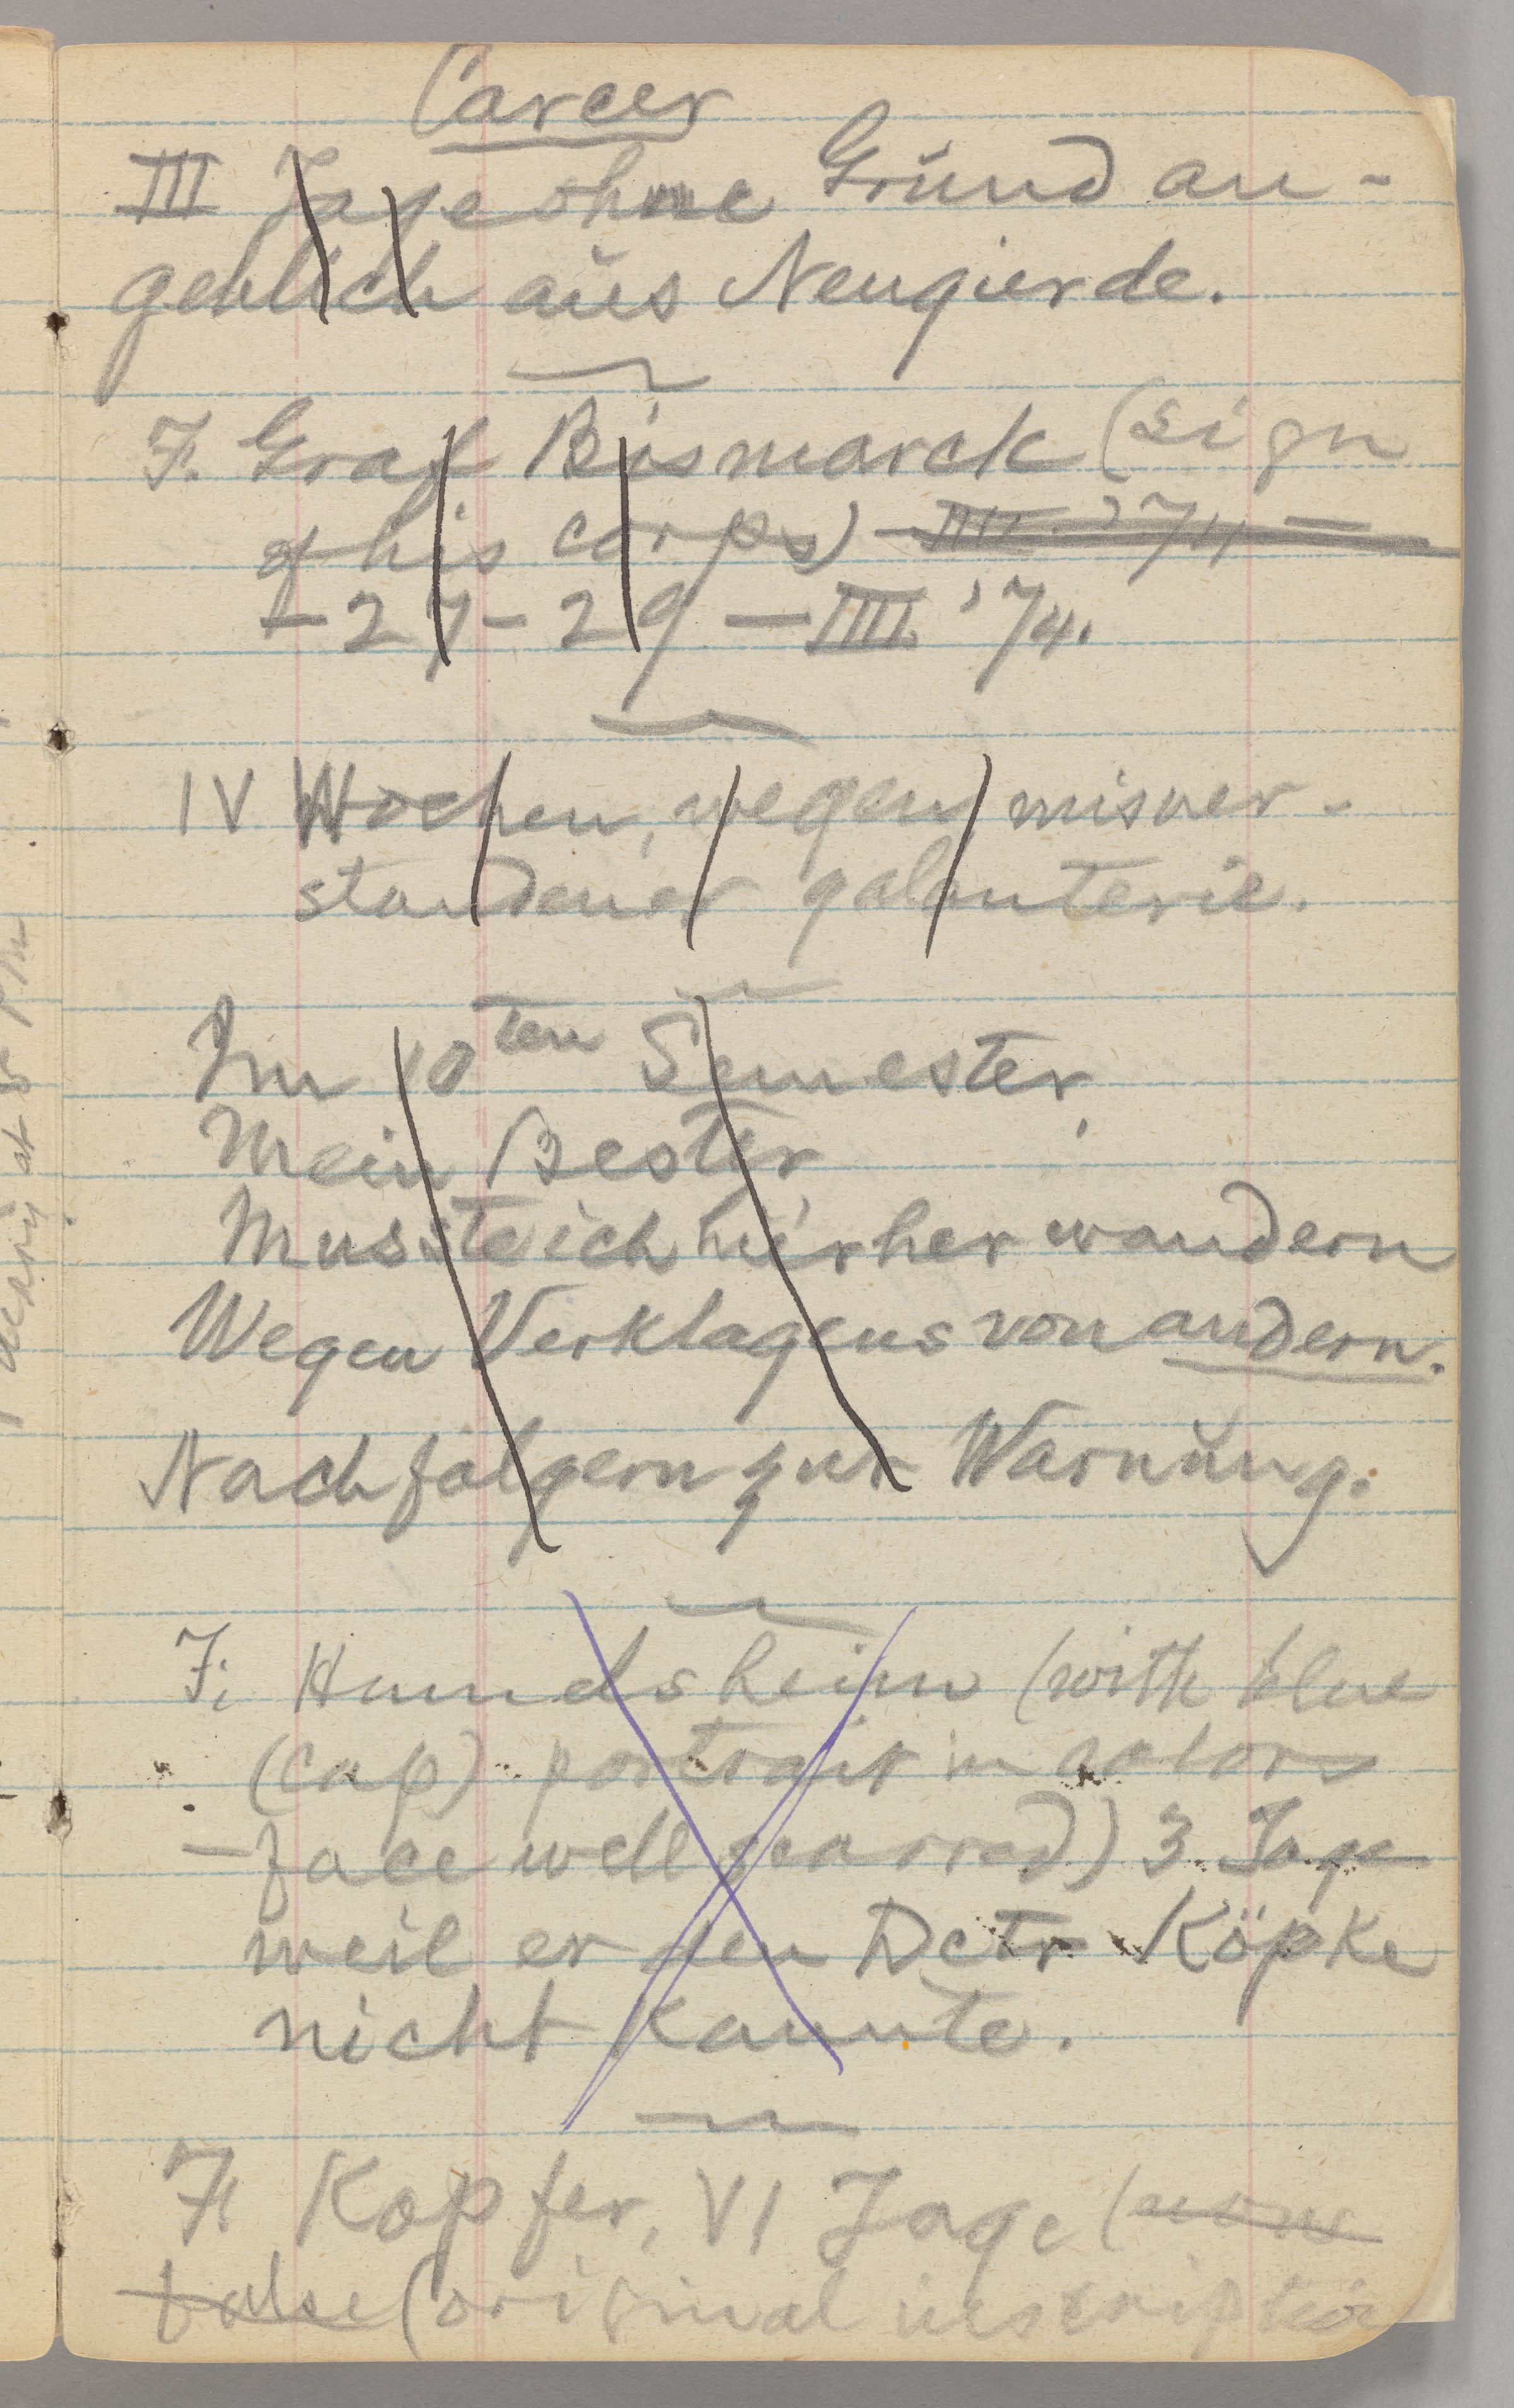 Carcer
III Tage ohne Grund an-
geblich aus Neugierde.
F. Graf Bismarck (sign
of his corps) – IIII. '74 –
– 27 – 29 – IIII '74.
IV Wochen, wegen misver-
standener galanterie.
Im 10ten Semester,
Mein Bester,
Musste ich hierher wandern
Wegen Verklagens von andern.
Nachfolgern zur Warnung.
F. Hundsheim (with blue
(cap) portrait in colors
– face well scarred) 3 Tage
weil er den Dctr Köpke
nicht kannte.
F. Kopfer, VI Tage (
false (original inscription